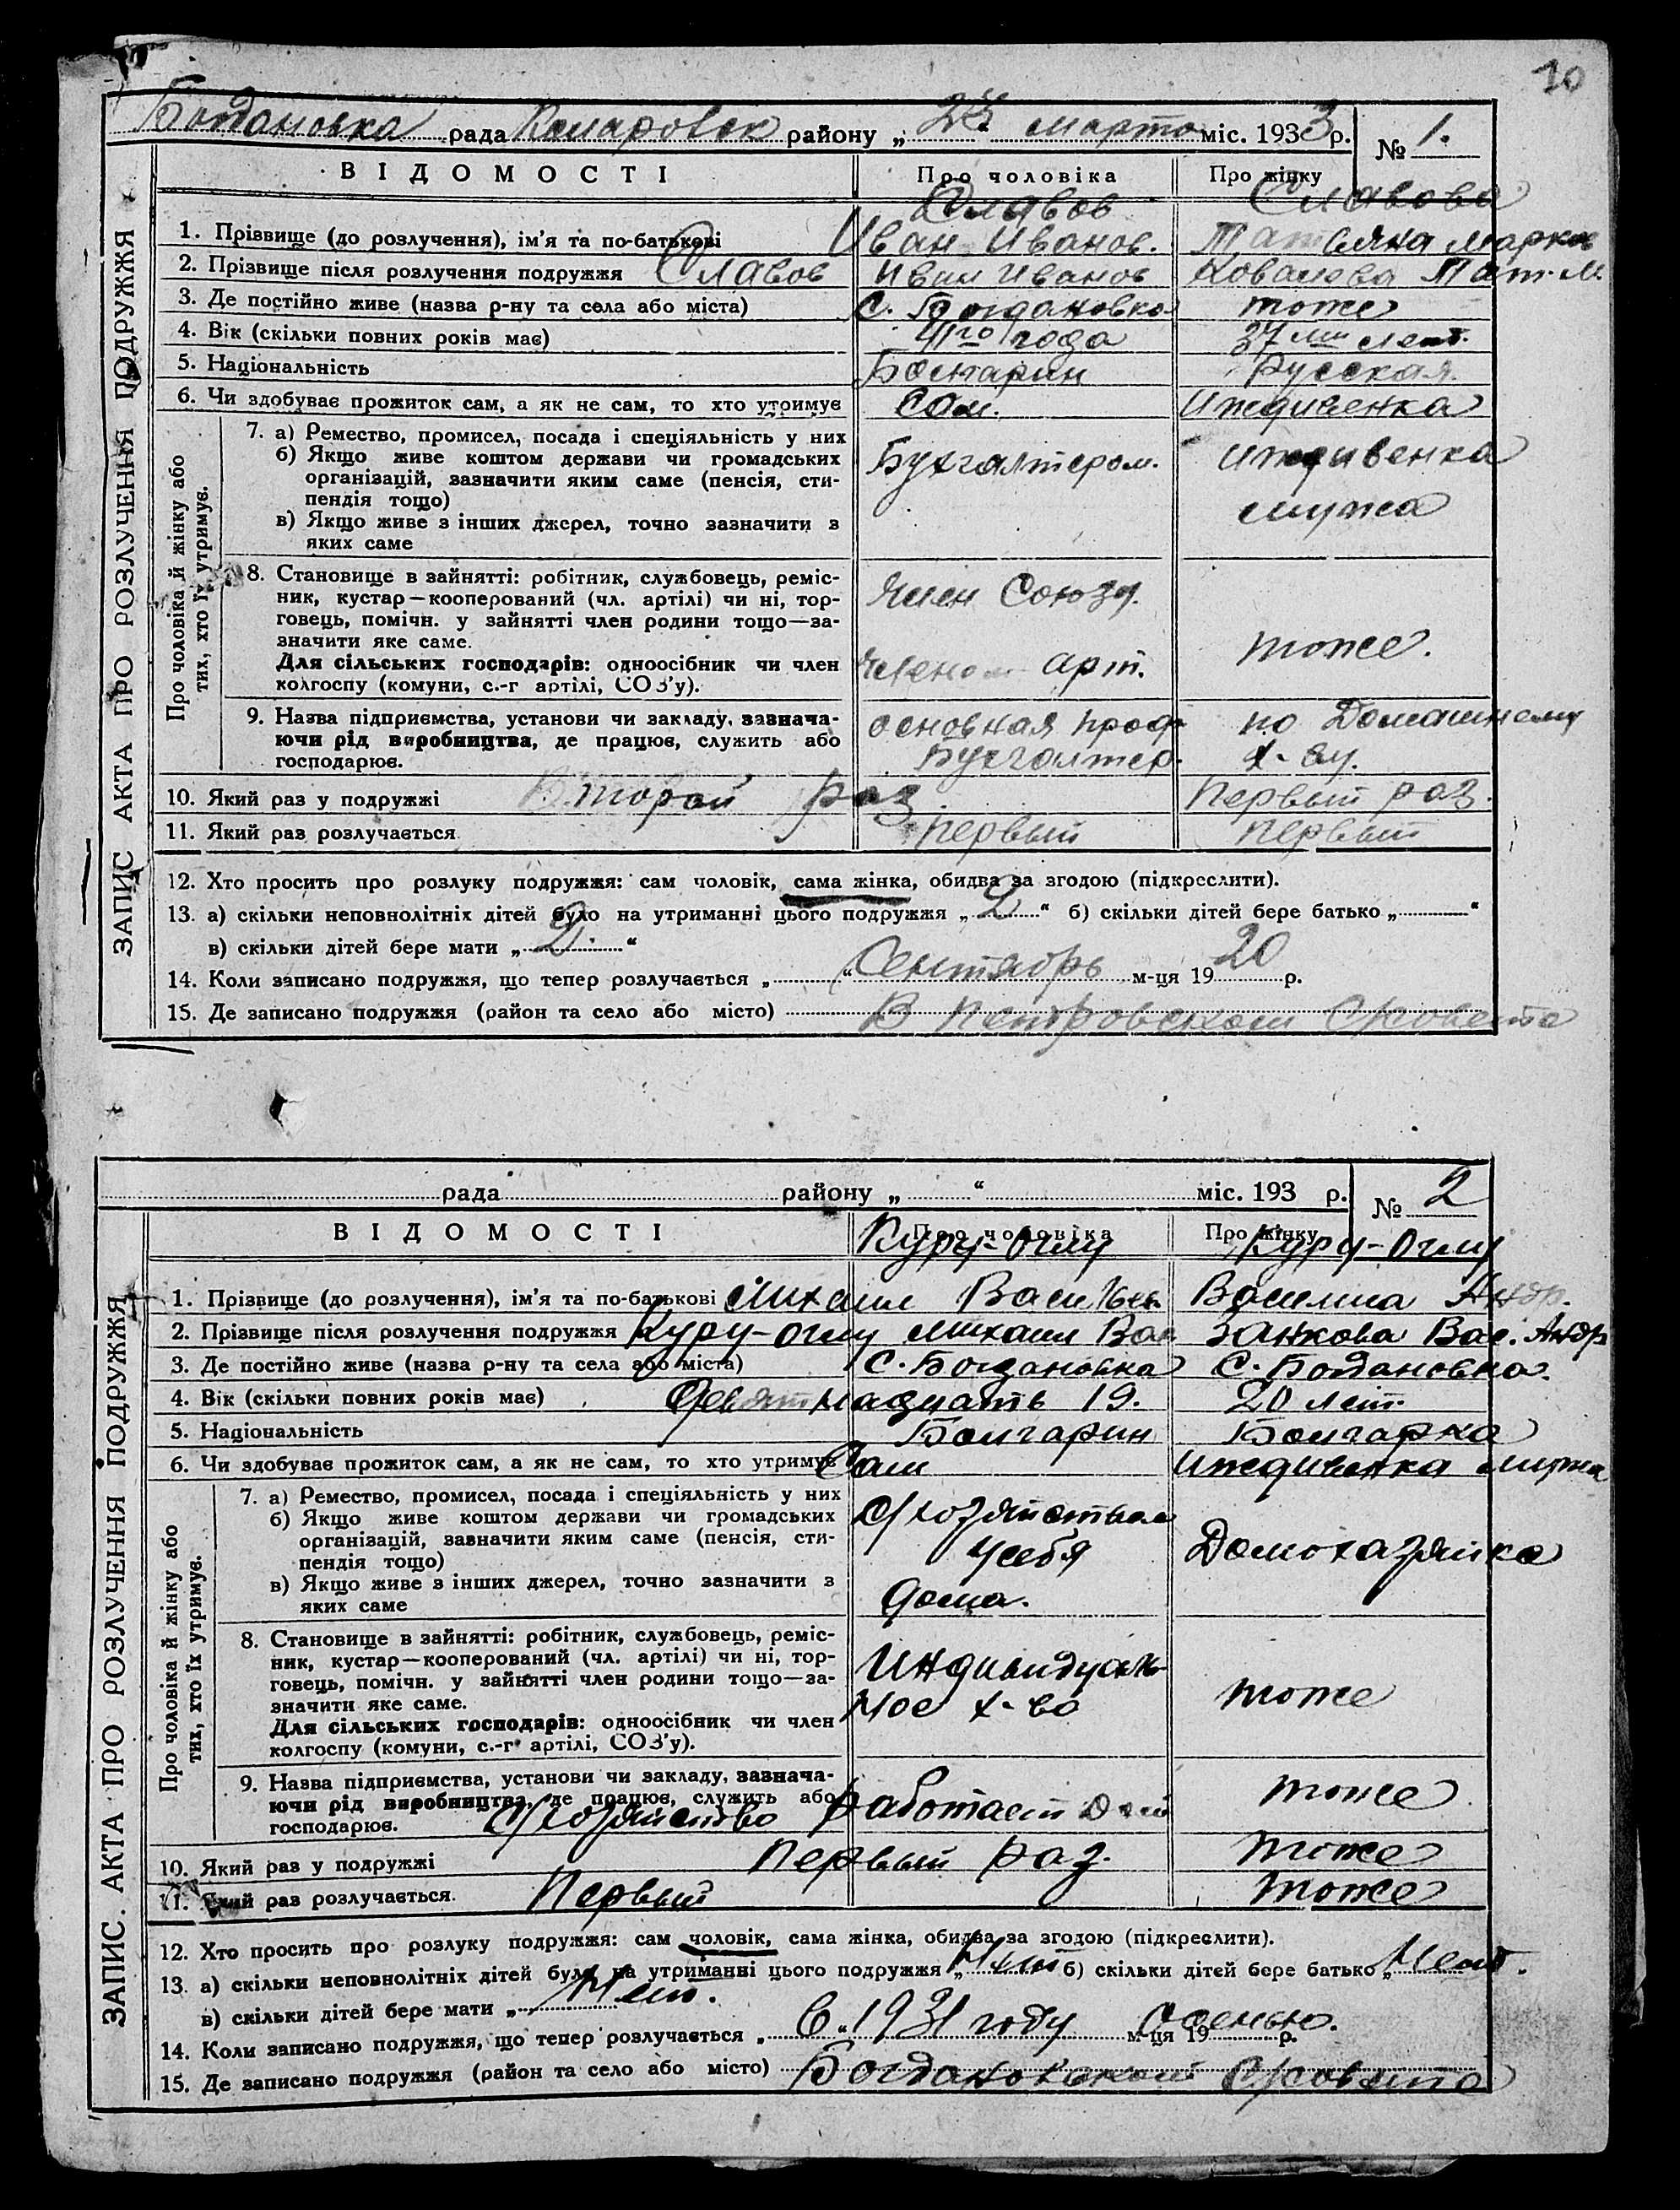 10
Богдановка рада Коларовск району „ 25 “ марта міс. 1933 р. № 1.
ВІДОМОСТІ Про чоловіка Про жінку
Славов Славова
1. Прізвище (до розлучення), ім’я та по-батькові Иван Иванов. Татьяна Марков
2. Прізвище після розлучення подружжя Славов Иван Иванов Ковалева Тат. М.
3. Де постійно живе (назва р-ну та села або міста) С. Богдановка тоже
4. Вік (скільки повних років має) 41го года 37ми лет.
5. Національність Болгарин Русская.
6. Чи здобуває прожиток сам, а як не сам, то хто утримує Сам. Иждивенка
Про чоловіка й жінку або тих, хто їх утримує.
7. а) Ремество, промисел, посада і спеціяльність у них
б) Якщо живе коштом держави чи громадських Бухгалтером. иждивенка
організацій, зазначити яким саме (пенсія, сти-
пендія тощо) мужа
в) Якщо живе з інших джерел, точно зазначити з
яких саме
8. Становище в зайнятті: робітник, службовець, реміс-
ник, кустар—кооперований (чл. артілі) чи ні, тор- Член Союза.
говець, помічн. у зайнятті член родини тощо—за-
значити яке саме. тоже.
Для сільських господарів: одноосібник чи член Членом арт.
колгоспу (комуни, с.-г артілі, СОЗ’у).
9. Назва підприємства, установи чи закладу, зазнача- основная проф. по Домашнему
ючи рід виробництва, де працює, служить або Бухгалтер. х-ву.
господарює.
10. Який раз у подружжі Второй раз. Первый раз.
11. Який раз розлучається Первый Первый
12. Хто просить про розлуку подружжя: сам чоловік, сама жінка, обидва за згодою (підкреслити).
13. а) скільки неповнолітніх дітей було на утриманні цього подружжя „ 2 “ б) скільки дітей бере батько „ “
в) скільки дітей бере мати „ 2. “
14. Коли записано подружжя, що тепер розлучається „ “ Сентябрь м-ця 1920 р.
15. Де записано подружжя (район та село або місто) В Петровском С/совете
ЗАПИС АКТА ПРО РОЗЛУЧЕННЯ ПОДРУЖЖЯ
рада району „ “ міс. 193 р. № 2
ВІДОМОСТІ Про чоловіка Про жінку
Куру-Оглу Куру-Оглу
1. Прізвище (до розлучення), ім’я та по-батькові Михаил Васильев. Василиса Андр.
2. Прізвище після розлучення подружжя Куру-оглу Михаил Вас Занкова Вас. Андр
3. Де постійно живе (назва р-ну та села або міста) С. Богдановка С. Богдановка.
4. Вік (скільки повних років має) Девятнадцать 19. 20 лет.
5. Національність Болгарин Болгарка
6. Чи здобуває прожиток сам, а як не сам, то хто утримує Сам Иждивенка мужа
Про чоловіка й жінку або тих, хто їх утримує.
7. а) Ремество, промисел, посада і спеціяльність у них
б) Якщо живе коштом держави чи громадських С/хозяйством
організацій, зазначити яким саме (пенсія, сти- у себя Домохазяйка
пендія тощо)
в) Якщо живе з інших джерел, точно зазначити з дома.
яких саме
8. Становище в зайнятті: робітник, службовець, реміс-
ник, кустар—кооперований (чл. артілі) чи ні, тор- Индивидуаль-
говець, помічн. у зайнятті член родини тощо—за-
значити яке саме. ное х-во тоже
Для сільських господарів: одноосібник чи член
колгоспу (комуни, с.-г артілі, СОЗ’у).
9. Назва підприємства, установи чи закладу, зазнача- тоже
ючи рід виробництва, де працює, служить або С/хозяйство работает
господарює.
10. Який раз у подружжі Первый раз. тоже
11. Який раз розлучається Первый тоже
12. Хто просить про розлуку подружжя: сам чоловік, сама жінка, обидва за згодою (підкреслити).
13. а) скільки неповнолітніх дітей було на утриманні цього подружжя „ Нет б) скільки дітей бере батько „ Нет.
в) скільки дітей бере мати „ Нет.
14. Коли записано подружжя, що тепер розлучається „ в 1931 году осенью. м-ця 19 р.
15. Де записано подружжя (район та село або місто) Богдановский С/совет
ЗАПИС АКТА ПРО РОЗЛУЧЕННЯ ПОДРУЖЖЯ